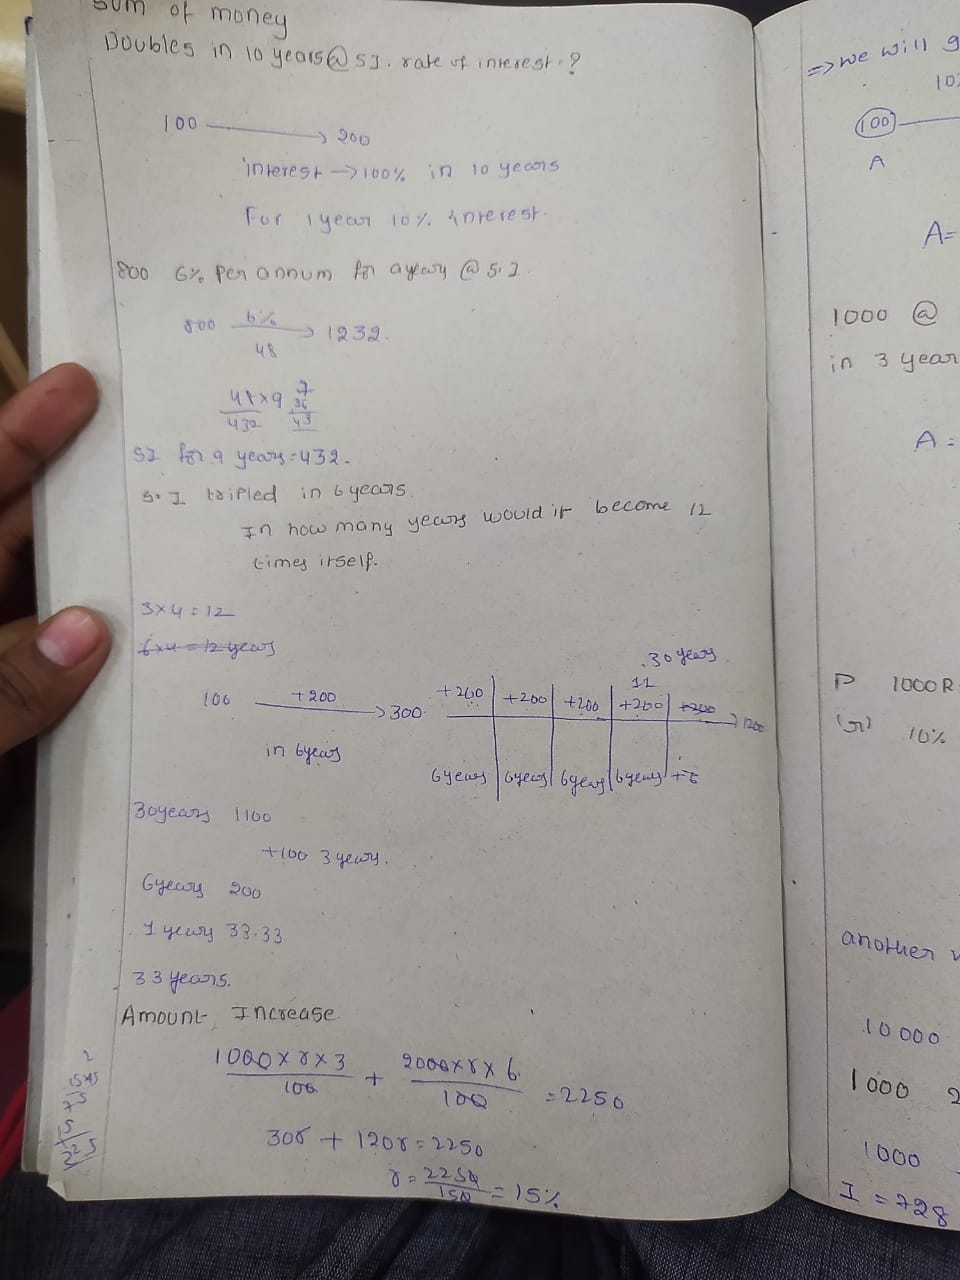 Sum of money
Doubles in 10 years @ SI. rate of interest?
100 → 200
interest → 100% in 10 years
For 1 year 10% interest.
800 6% Per annum for years @ S.I.
800 6% → 1232.
48
48×9
432
7
36
43
SI for 9 years = 432.
S. I tripled in 6 years.
In how many years would it become 12
times itself.
3×4=12
6×4=12 years
30 years
100 +200 → 300 +200 +200 +200 11 +200 +200 → 1200
in 6 years 6 years 6 years 6 years 6 years +6
30 years 1100
+100 3 years.
6 years 200
1 years 33.33
33 years.
Amount Increase
1000×r×3/100 + 2000×r×6/100 = 2250
30r + 120r = 2250
r = 2250/150 = 15%
2
15×5
75
15
225
⇒ we will g
100
A
A=
1000 @
in 3 year
A =
P 1000 R
(r) 10%
another
10 000
1000 2
1000
I = 728